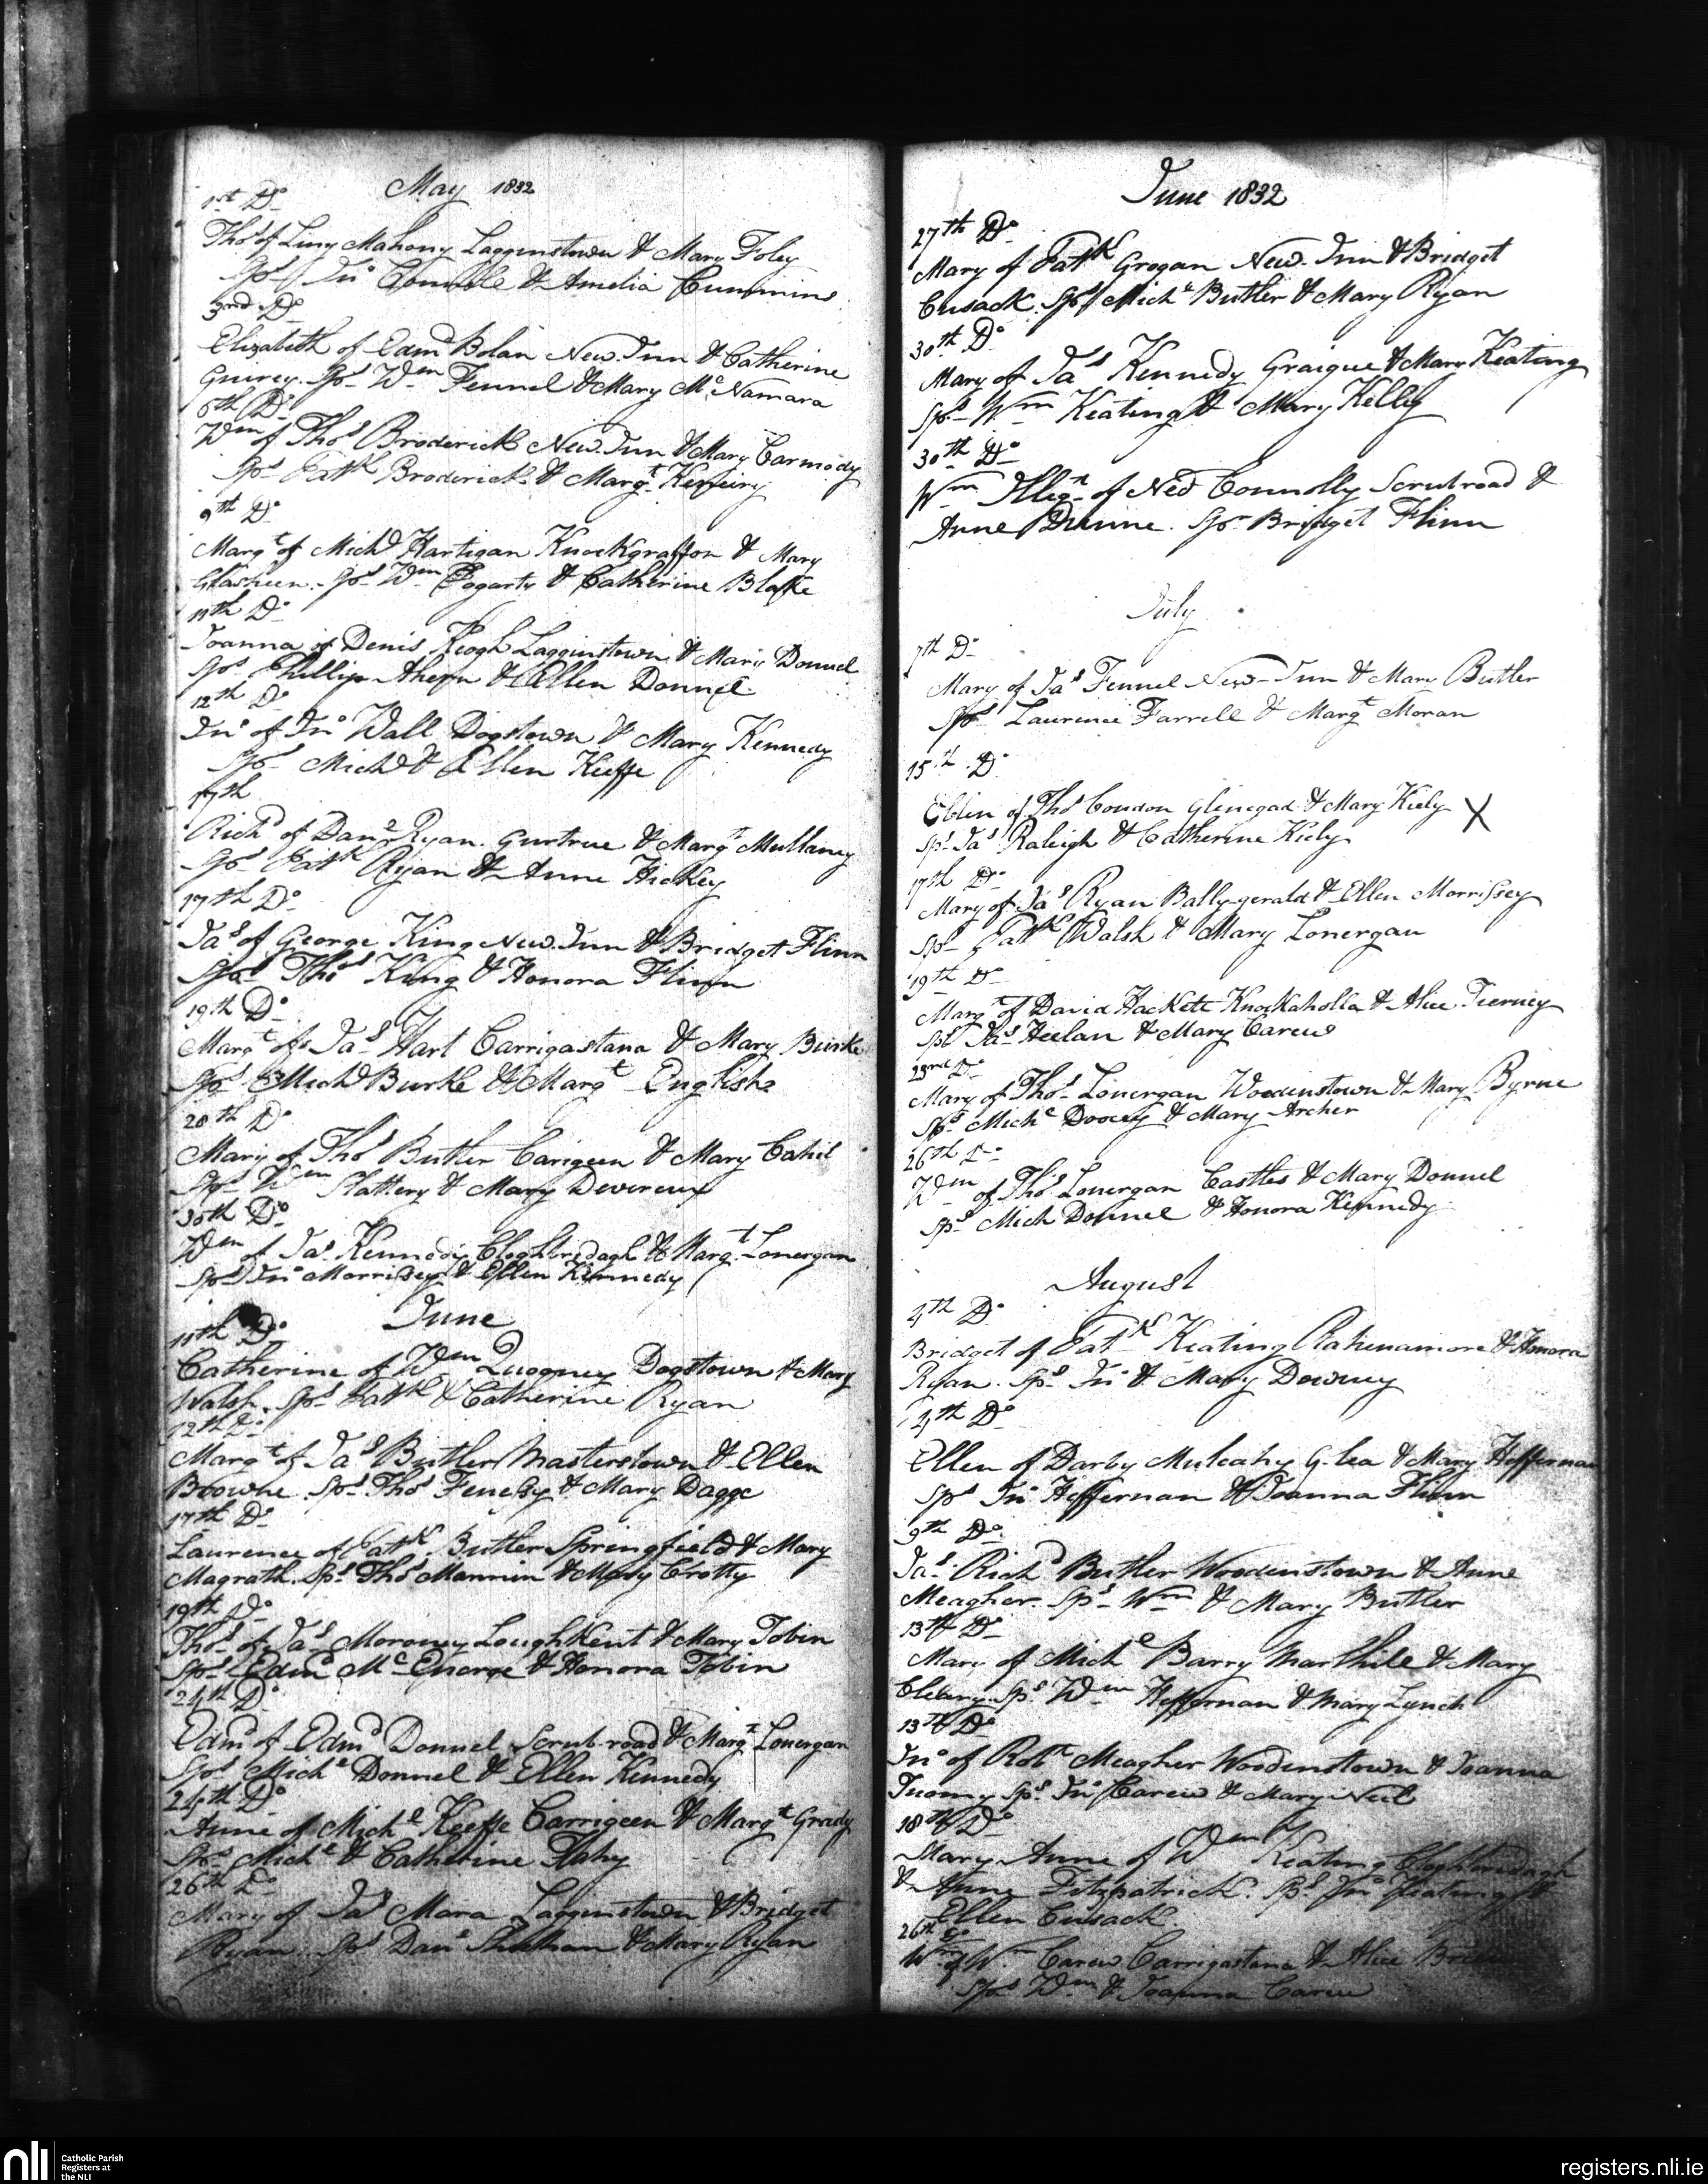 May 1832
1st Do
Thos of Liny Mahony Lagginstown & Mary Foley
Sps Jno & Amelia Cummins
3rd Do
Elizabeth of Edmd Bolan New Inn & Catherine
Guirey. Sps Wm Fennel & Mary McNamara
6th Do
Wm of Thos Broderick New Inn & Mary Carmody
Sps Patk Broderick & Margt
9th Do
Margt of Michl Hartigan Knockgraffon & Mary
Glasheen. Sps Wm Fogarty & Catherine Blake
11th Do
Joanna of Denis Keogh Lagginstown & Mary Donnel
Sps Phillip Ahern & Ellen Donnel
12th Do
Jno of Jno Wall Dogstown & Mary Kennedy
Sps Michl & Ellen Keeffe
17th
Richd of Danl Ryan. Gurtrue & Margt Mullany
Sps Patk Ryan & Anne Hickey
17th Do
Jas of George King New Inn & Bridget Flinn
Sps Thos King & Honora Flinn
19th Do
Margt of Jas Hart Carrigastana & Mary Burke
Sps Michl Burke & Margt English
20th Do
Mary of Thos Butler Carigeen & Mary Cahil
Sps Wm Slattery & Mary Devereux
30th Do
Wm of Jas Kennedy Cloghbridagh & Margt Lonergan
Sps Jno Morrissey & Ellen Kennedy
June
11th Do
Catherine of Wm Dogstown & Mary
Walsh. Sps Patk & Catherine Ryan
12th Do
Margt of Jas Butler Masterstown & Ellen
Browne. Sps Thos & Mary Dagge
17th Do
Laurence of Patk Butler Springfield & Mary
Magrath. Sps Thos Mannin & Mary Crotty
19th Do
Thos of Jas Moroney Loughkent & Mary Tobin
Sps Edmd Mc & Honora Tobin
24th Do
Edmd of Edmd Donnel Scrub-road & Margt Lonergan
Sps Michl Donnel & Ellen Kennedy
24th Do
Anne of Michl Keeffe Carrigeen & Margt Grady
Sps Michl & Catherine Flahy
26th Do
Mary of Jas Mara Lagginstown & Bridget
Ryan. Sps Danl Shehan & Mary Ryan
June 1832
27th Do
Mary of Patk Grogan New Inn & Bridget
Cusack. Sps Michl Butler & Mary Ryan
30th Do
Mary of Jas Kennedy Graigue & Mary Keating
Sps Wm Keating & Mary Kelly
30th Do
Wm Illegt of Ned Connolly Scrub road &
Anne Dunne. Sps Bridget Flinn
July
7th Do
Mary of Jas Fennel New-Inn & Mary Butler
Sps Laurence Farrell & Margt Moran
15th Do
Ellen of Thos Condon Glinegad & Mary Kiely X
Sps Jas Raleigh & Catherine Kiely
17th Do
Mary of Jas Ryan Bally-gerald & Ellen Morrissey
Sps Patk Walsh & Mary Lonergan
19th Do
Margt of David Hackett Knockaholla & Alice Tierney
Sps Jas Heelan & Mary Carew
23rd Do
Mary of Thos Lonergan Woodinstown & Mary Byrne
Sps Michl Doocey & Mary Archer
26th Do
Wm of Thos Lonergan Castles & Mary Donnel
Sps Mich Donnel & Honora Kennedy
August
4th Do
Bridget of Patk Keating Rahinamore & Honora
Ryan. Sps Jno & Mary Downey
4th Do
Ellen of Darby Mulcahy G-lea & Mary Heffernan
Sps Jno Heffernan & Joanna Flinn
9th Do
Jas Richd Butler Woodinstown & Anne
Meagher. Sps Wm & Mary Butler
13th Do
Mary of Michl Barry Marlhill & Mary
Cleary. Sps Wm Heffernan & Mary Lynch
13th Do
Jno of Robt Meagher Woodinstown & Joanna
Tuomy Sps Jno Carew & Mary Neil
18th Do
Mary Anne of Wm Keating Cloghbridagh
& Anne Fitzpatrick. Sps Jno Keating &
Ellen Cusack.
26th Do
Wm of Wm Carew Carrigastana & Alice
Sps Wm & Joanna Carew
nli
Catholic Parish
Registers at
the NLI
registers.nli.ie